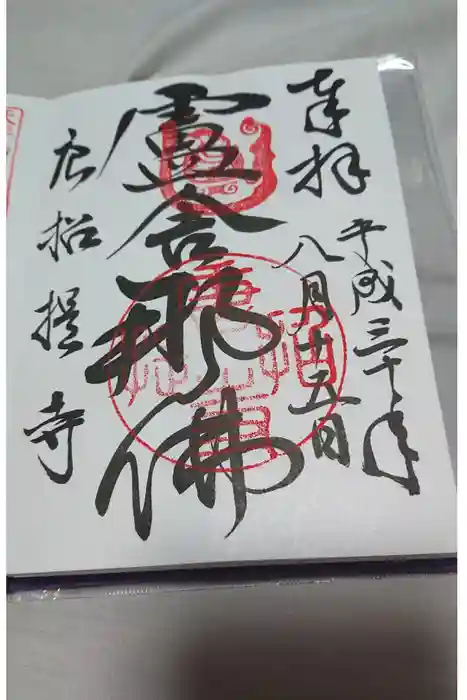 奉拝
平成三十年
八月廿五日
盧舎那佛
唐招提寺